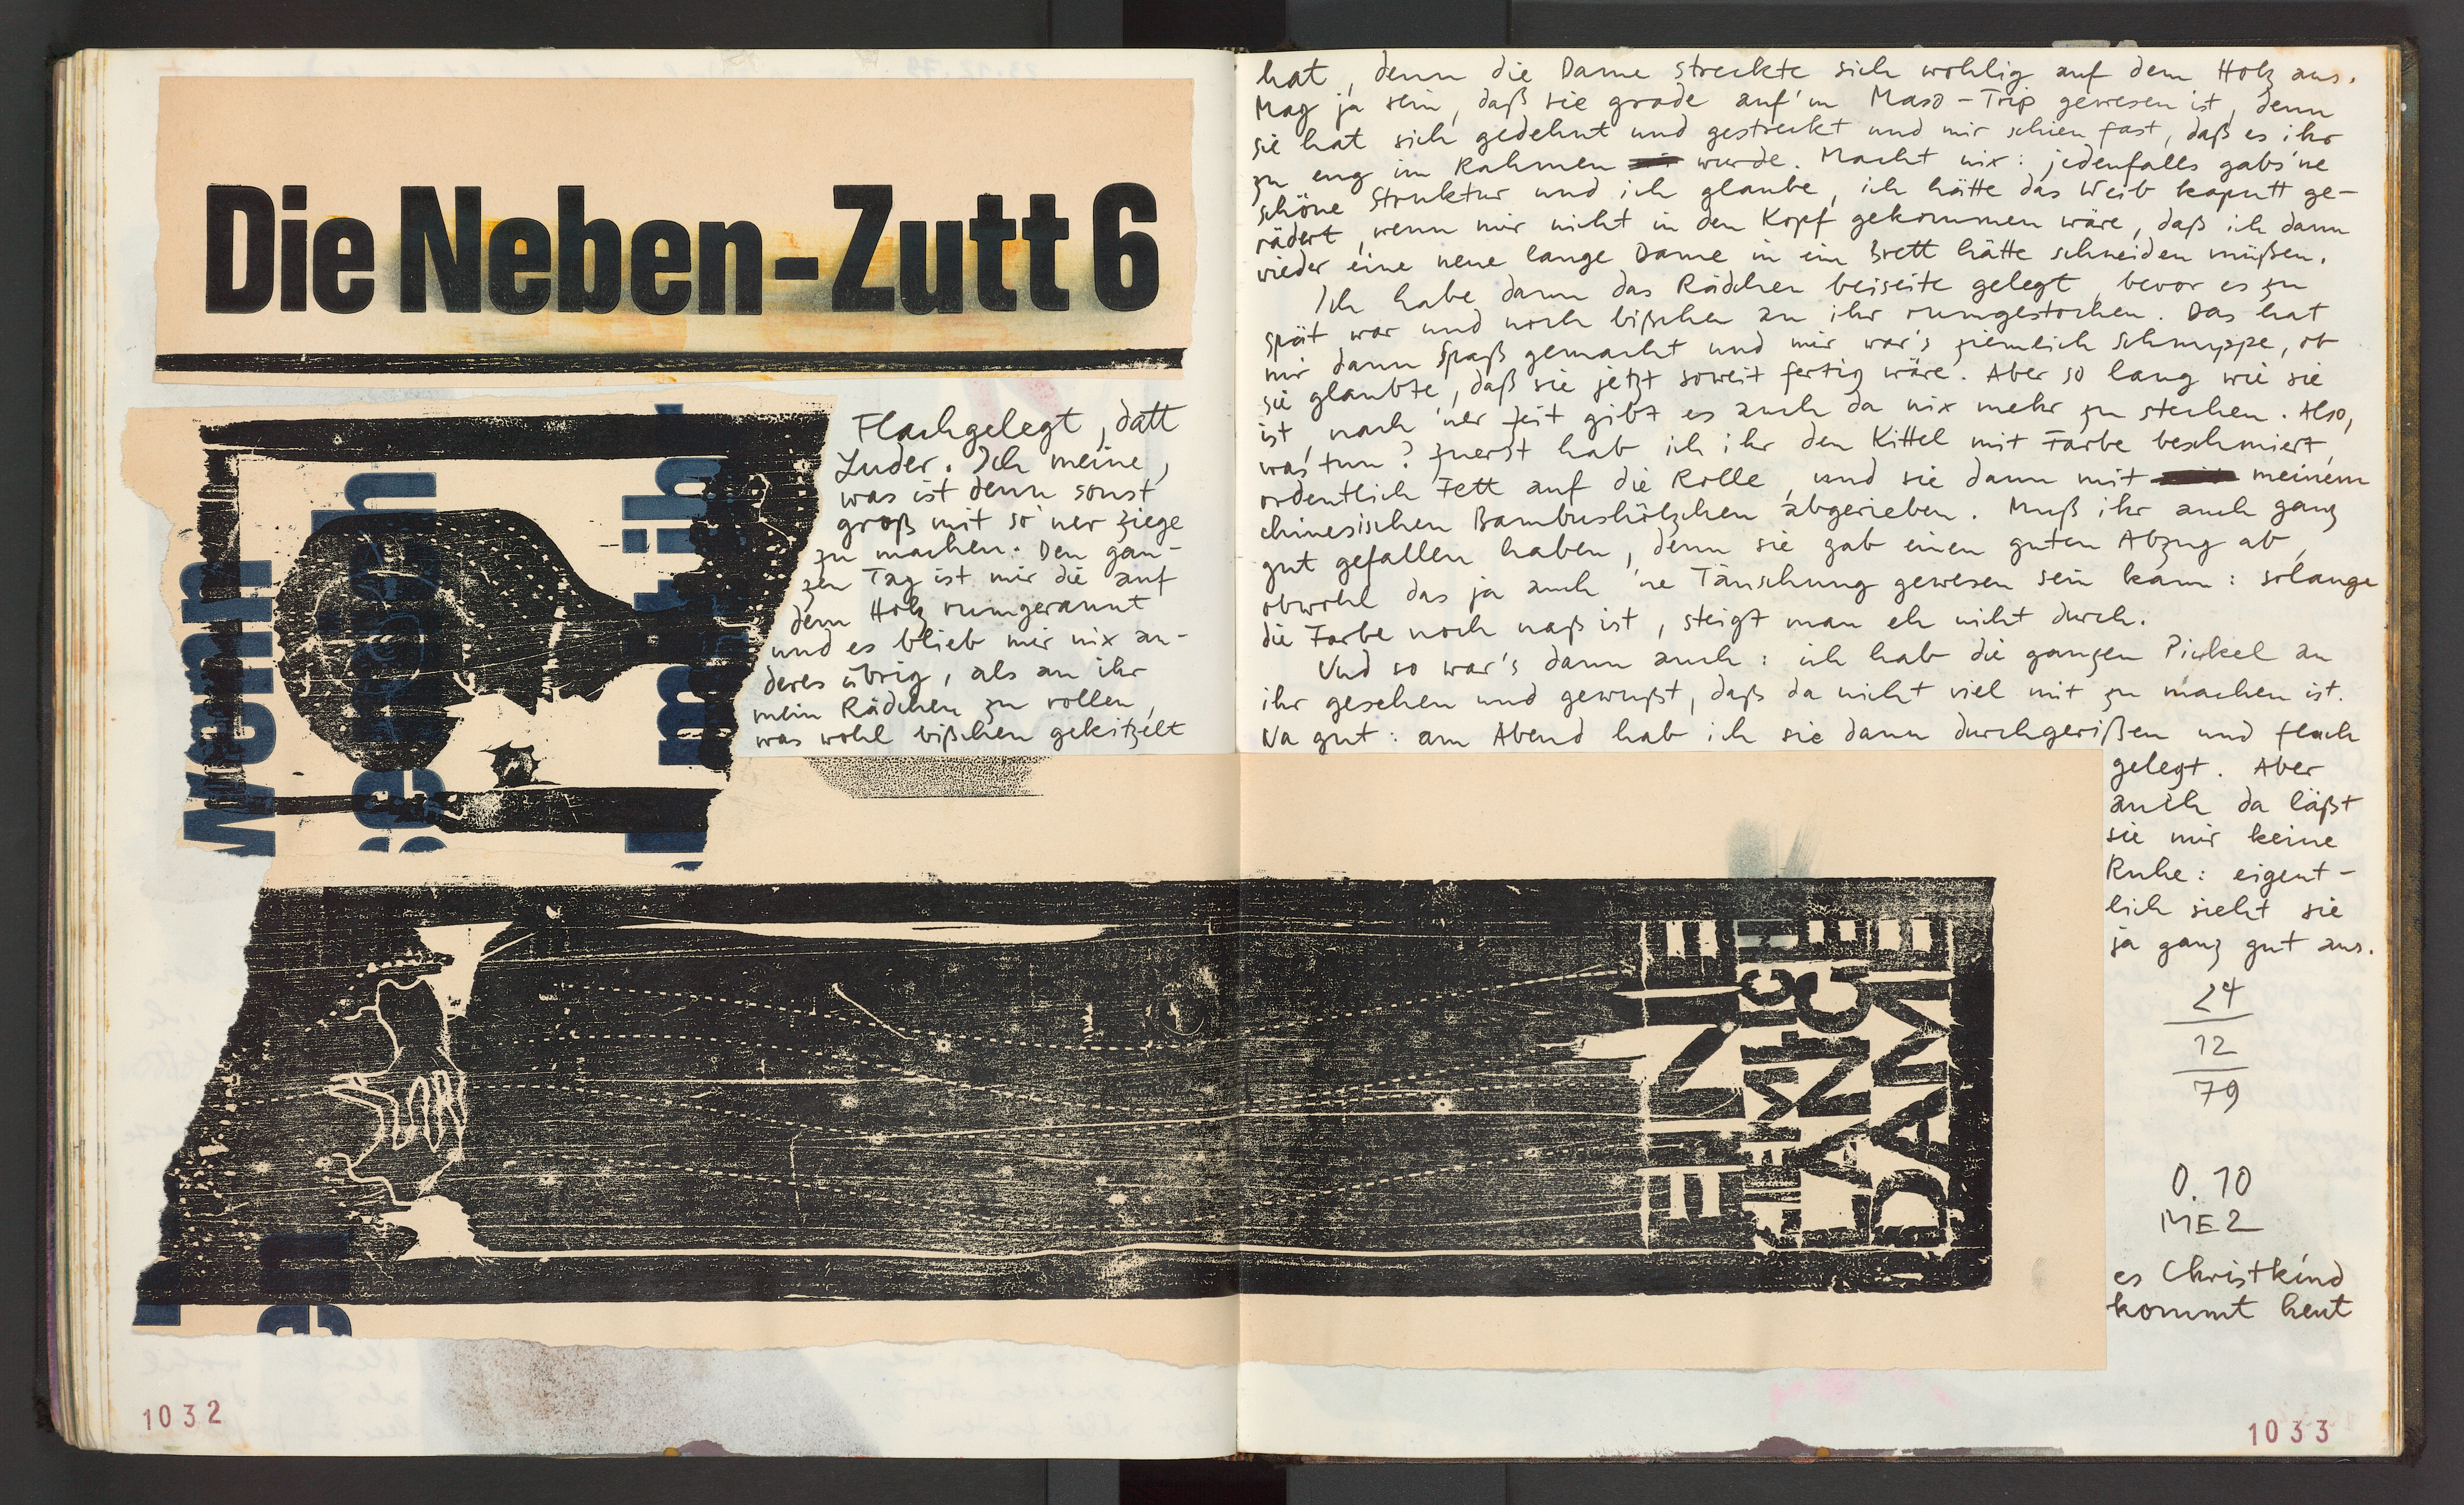 Die Neben-Zutt 6
Flachgelegt, datt
Luder. Ich meine,
was ist denn sonst
groß mit so'ner Ziege
zu machen. Den gan-
zen Tag ist mir die auf
dem Holz rumgerannt
und es blieb mir nix an-
deres übrig, als an ihr
mein Rädchen zu rollen,
was wohl bißchen gekitzelt
wenn
EINE
LANGE
DAME
1032
hat, denn die Dame streckte sich wohlig auf dem Holz aus.
Mag ja sein, daß sie grade auf'm Maso-Trip gewesen ist, denn
sie hat sich gedehnt und gestreckt und mir schien fast, daß es ihr
zu eng im Rahmen wurde. Macht nix: jedenfalls gabs'ne
schöne Struktur und ich glaube, ich hätte das Weib kaputt ge-
rädert, wenn mir nicht in den Kopf gekommen wäre, daß ich dann
wieder eine neue lange Dame in ein Brett hätte schneiden müßen.
Ich habe dann das Rädchen beiseite gelegt, bevor es zu
spät war und noch bißchen an ihr rumgestochen. Das hat
mir dann Spaß gemacht und mir war's ziemlich schnuppe, ob
sie glaubte, daß sie jetzt soweit fertig wäre. Aber so lang wie sie
ist, nach 'ner Zeit gibt es auch da nix mehr zu stechen. Also,
was tun? Zuerst hab ich ihr den Kittel mit Farbe beschmiert,
ordentlich Fett auf die Rolle, und sie dann mit meinem
chinesischen Bambushölzchen abgerieben. Muß ihr auch ganz
gut gefallen haben, denn sie gab einen guten Abzug ab,
obwohl das ja auch 'ne Täuschung gewesen sein kann: solange
die Farbe noch naß ist, steigt man eh nicht durch.
Und so war's dann auch: ich hab die ganzen Pickel an
ihr gesehen und gewußt, daß da nicht viel mit zu machen ist.
Na gut: am Abend hab ich sie dann durchgerißen und flach
gelegt. Aber
auch da läßt
sie mir keine
Ruhe: eigent-
lich sieht sie
ja ganz gut aus.
24
12
79
0.10
ME2
es Christkind
kommt heut
1033